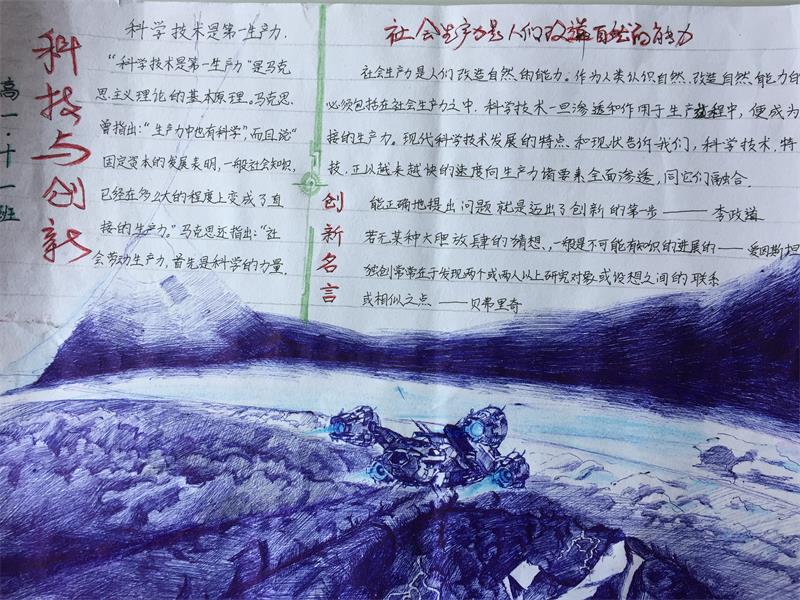 科技与创新
高一·十一班
科学技术是第一生产力.
“科学技术是第一生产力”是马克
思主义理论的基本原理。马克思
曾指出:“生产力中也有科学”,而且说“
固定资本的发展表明,一般社会知识,
已经在多么大的程度上变成了直
接的生产力。”马克思还指出:“社
会劳动生产力,首先是科学的力量.
社会生产力是人们改造自然的能力
社会生产力是人们改造自然的能力。作为人类认识自然、改造自然能力的
必须包括在社会生产力之中.科学技术一旦渗透和作用于生产过程中,便成为
接的生产力。现代科学技术发展的特点、和现状告诉我们,科学技术,特
技,正以越来越快的速度向生产力诸要素全面渗透,同它们融合.
创新名言
能正确地提出问题就是迈出了创新的第一步——李政道
若无某种大胆放肆的猜想,一般是不可能有知识的进展的——爱因斯坦
独创常常在于发现两个或两人以上研究对象或设想之间的联系
或相似之点——贝弗里奇